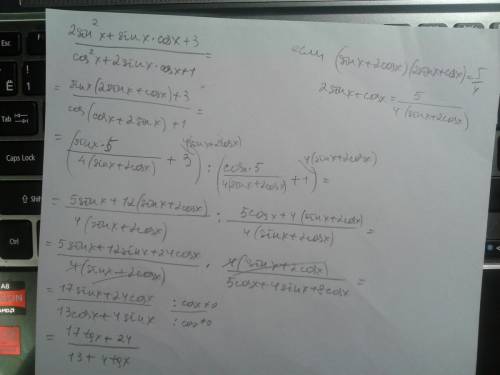 2sin²x+sinx·cosx+3 / cos²x+2sinx·cosx+1 =
если (sinx+2cosx)(2sinx+cosx)=5/4
2sinx+cosx = 5 / 4(sinx+2cosx)
= sinx(2sinx+cosx)+3 / cos(cosx+2sinx)+1 =
= (sinx·5 / 4(sinx+2cosx) + 3 4(sinx+2cosx)) : (cosx·5 / 4(sinx+2cosx) + 1 4(sinx+2cosx)) =
= 5sinx+12(sinx+2cosx) / 4(sinx+2cosx) : 5cosx+4(sinx+2cosx) / 4(sinx+2cosx) =
= 5sinx+12sinx+24cosx / 4(sinx+2cosx) · 4(sinx+2cosx) / 5cosx+4sinx+8cosx =
= 17sinx+24cosx / 13cosx+4sinx :cosx≠0 :cos≠0
= 17tgx+24 / 13+4tgx
Esc
Ё
1
Tab
Caps Lock
Shift
Ctrl
A8